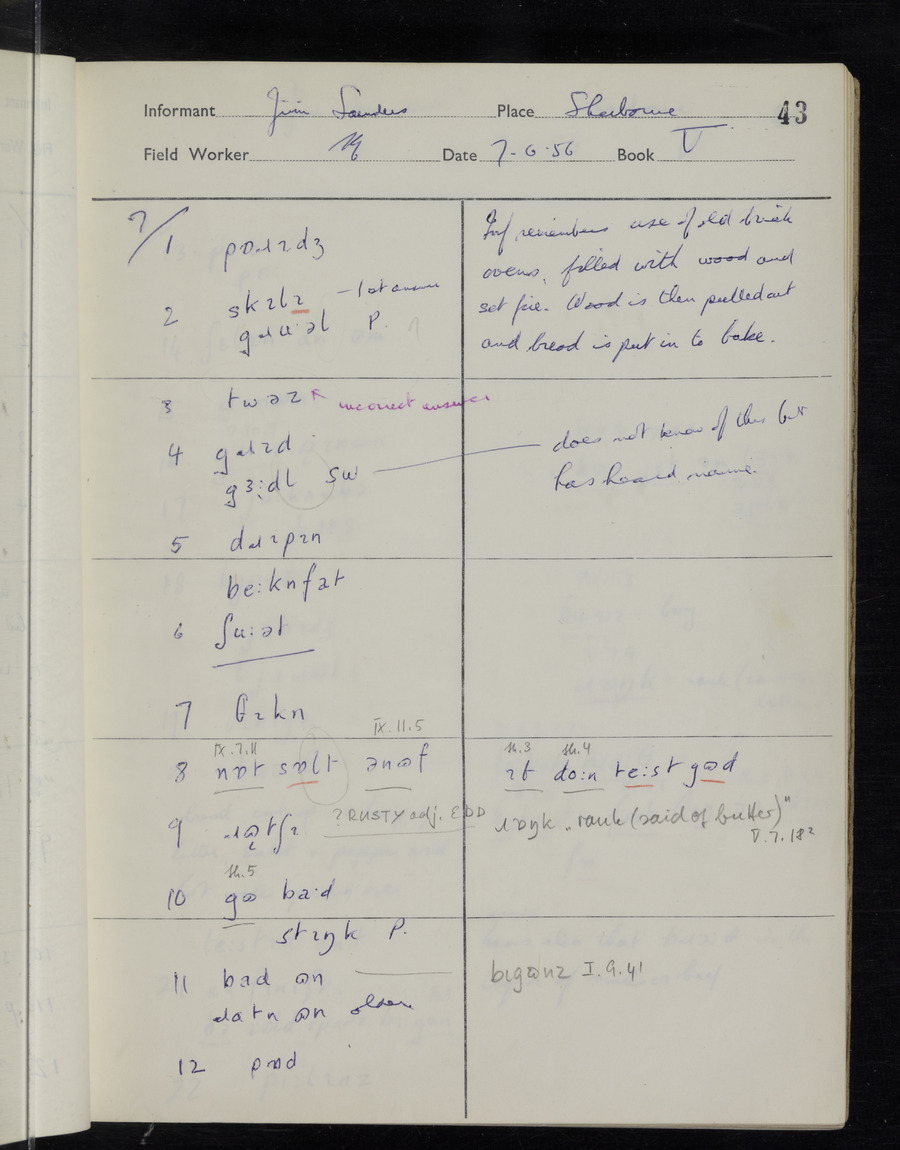 Informant Jim Saunders Place Sherborne 43
Field Worker Date 7-6-56 Book V
7/1 pɒɹɪdʒ
Inf remembers use of old brick
ovens, filled with wood and
set fire. Wood is then pulled out
and bread is put in to bake.
2 skɪlɪ – 1st answer
gɹuːəl P.
3 twəz incorrect answer
4 gɹɪd
gɜːdl SW
does not know of this but
has heard name.
5 dɹɪpɪn
beːknfat
6 ʃuːət
7 θɪkn
IX.7.11 IX.11.5
8 nɒt sɒlt ənɷf
sh.3 sh.4
ɪt doːn teːst gɷd
9 ɹɷtʃɪ ? RUSTY adj. EDD
ɹɒŋk „rank (said of butter)"
V.7.18²
sh.5
10 gɷ baːd
stɪŋk P.
11 bad ɷn
ɹatn ɷn older
bɪgɷnz I.9.41
12 pɷd